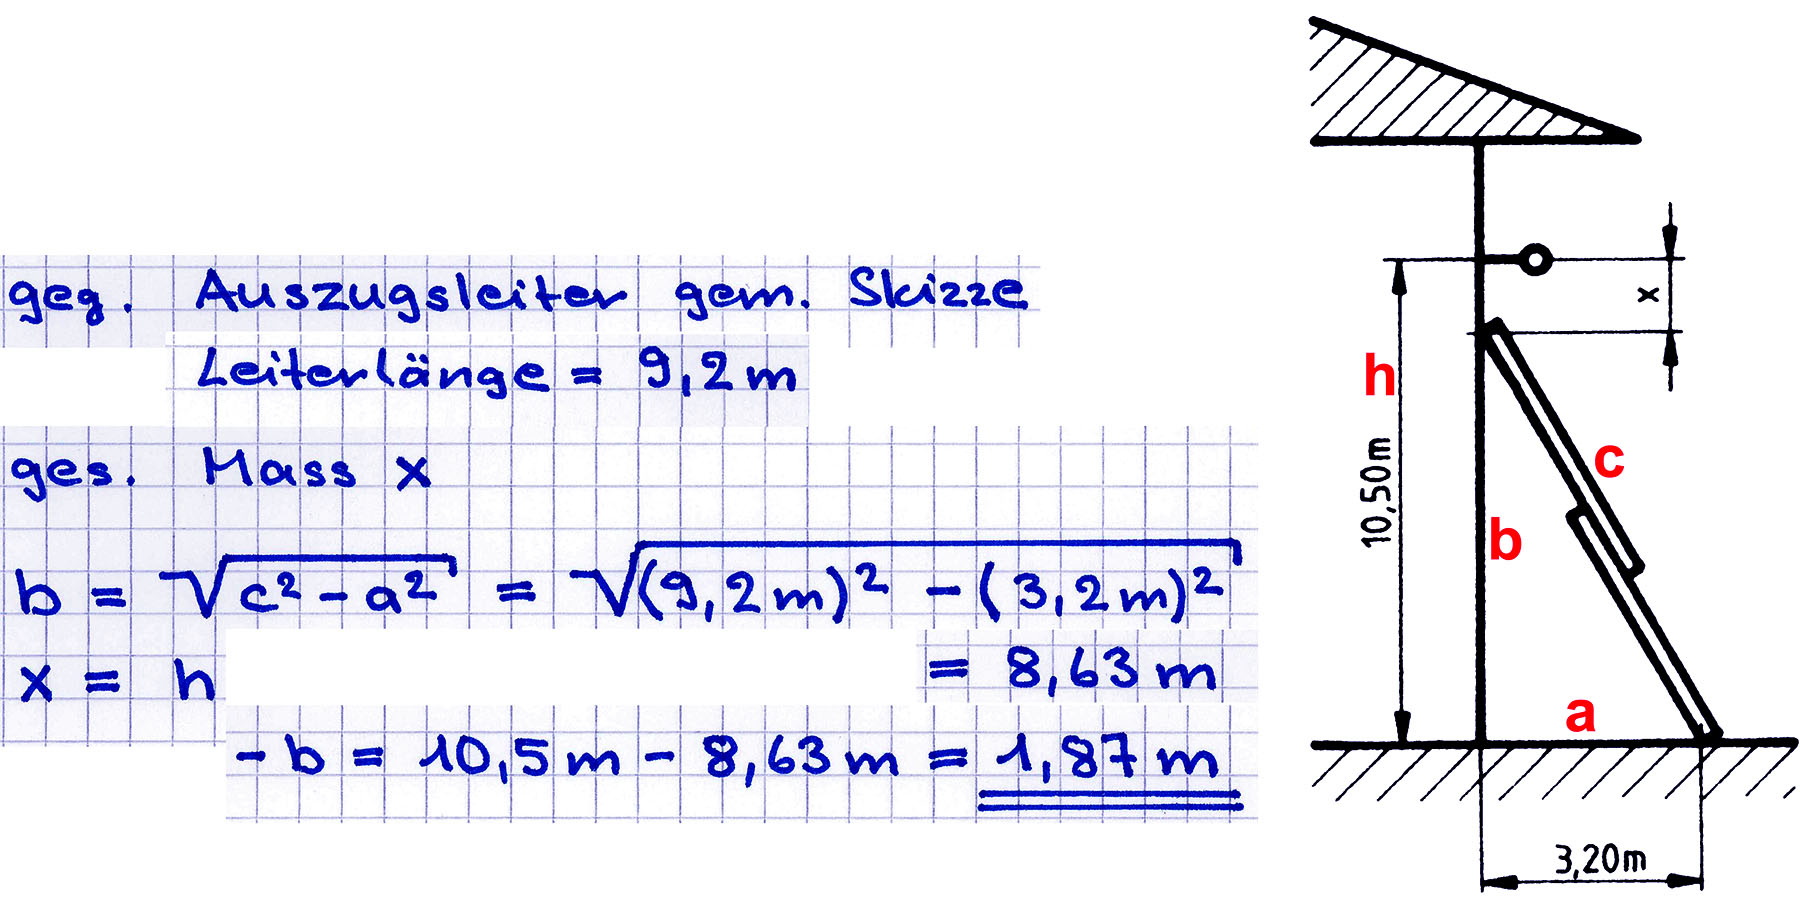 geg. Auszugsleiter gem. Skizze
Leiterlänge = 9,2m
ges. Mass x
b = √(c² - a²) = √((9,2m)² - (3,2m)²)
= 8,63 m
x = h
- b = 10,5m - 8,63m = 1,87m
x
h
10,50m
c
b
a
3,20m